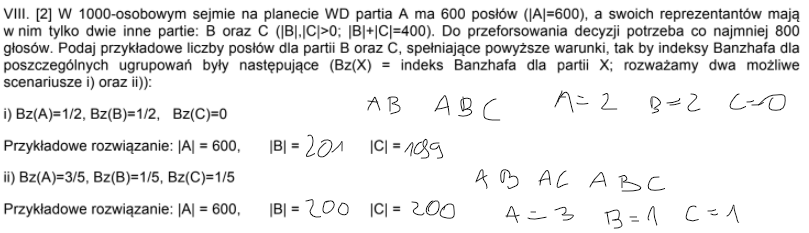 VIII. [2] W 1000-osobowym sejmie na planecie WD partia A ma 600 posłów (|A|=600), a swoich reprezentantów mają
w nim tylko dwie inne partie: B oraz C (|B|,|C|>0; |B|+|C|=400). Do przeforsowania decyzji potrzeba co najmniej 800
głosów. Podaj przykładowe liczby posłów dla partii B oraz C, spełniające powyższe warunki, tak by indeksy Banzhafa dla
poszczególnych ugrupowań były następujące (Bz(X) = indeks Banzhafa dla partii X; rozważamy dwa możliwe
scenariusze i) oraz ii)):
AB ABC A=2 B=2 C=0
i) Bz(A)=1/2, Bz(B)=1/2, Bz(C)=0
Przykładowe rozwiązanie: |A| = 600, |B| = 201 |C| =
ii) Bz(A)=3/5, Bz(B)=1/5, Bz(C)=1/5
AB AC ABC
Przykładowe rozwiązanie: |A| = 600, |B| = 200 |C| = 200
A=3 B=1 C=1